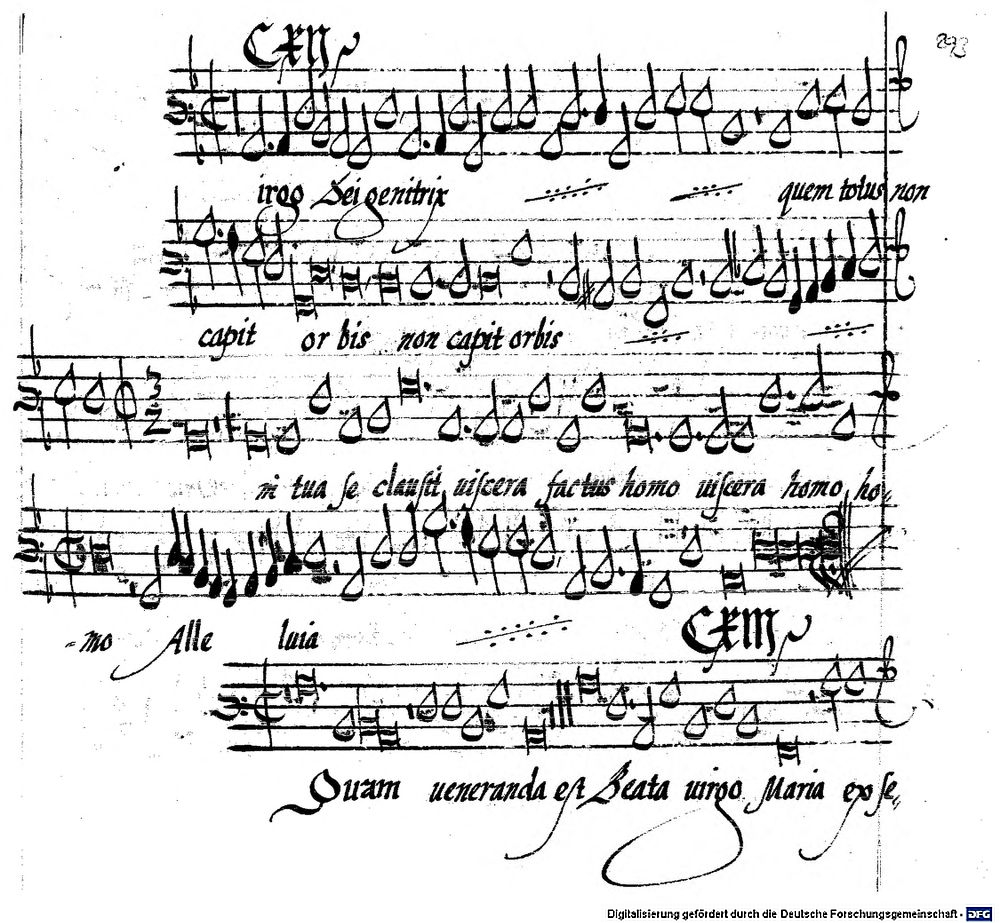 CXII
293
irgo Dei genitrix quem totus non
capit or bis non capit orbis
3
2
in tua se clausit uiscera factus homo uiscera homo ho„
-mo Alle luia
CXIII
Quam ueneranda est Beata uirgo Maria ex se„
Digitalisierung gefördert durch die Deutsche Forschungsgemeinschaft - DFG